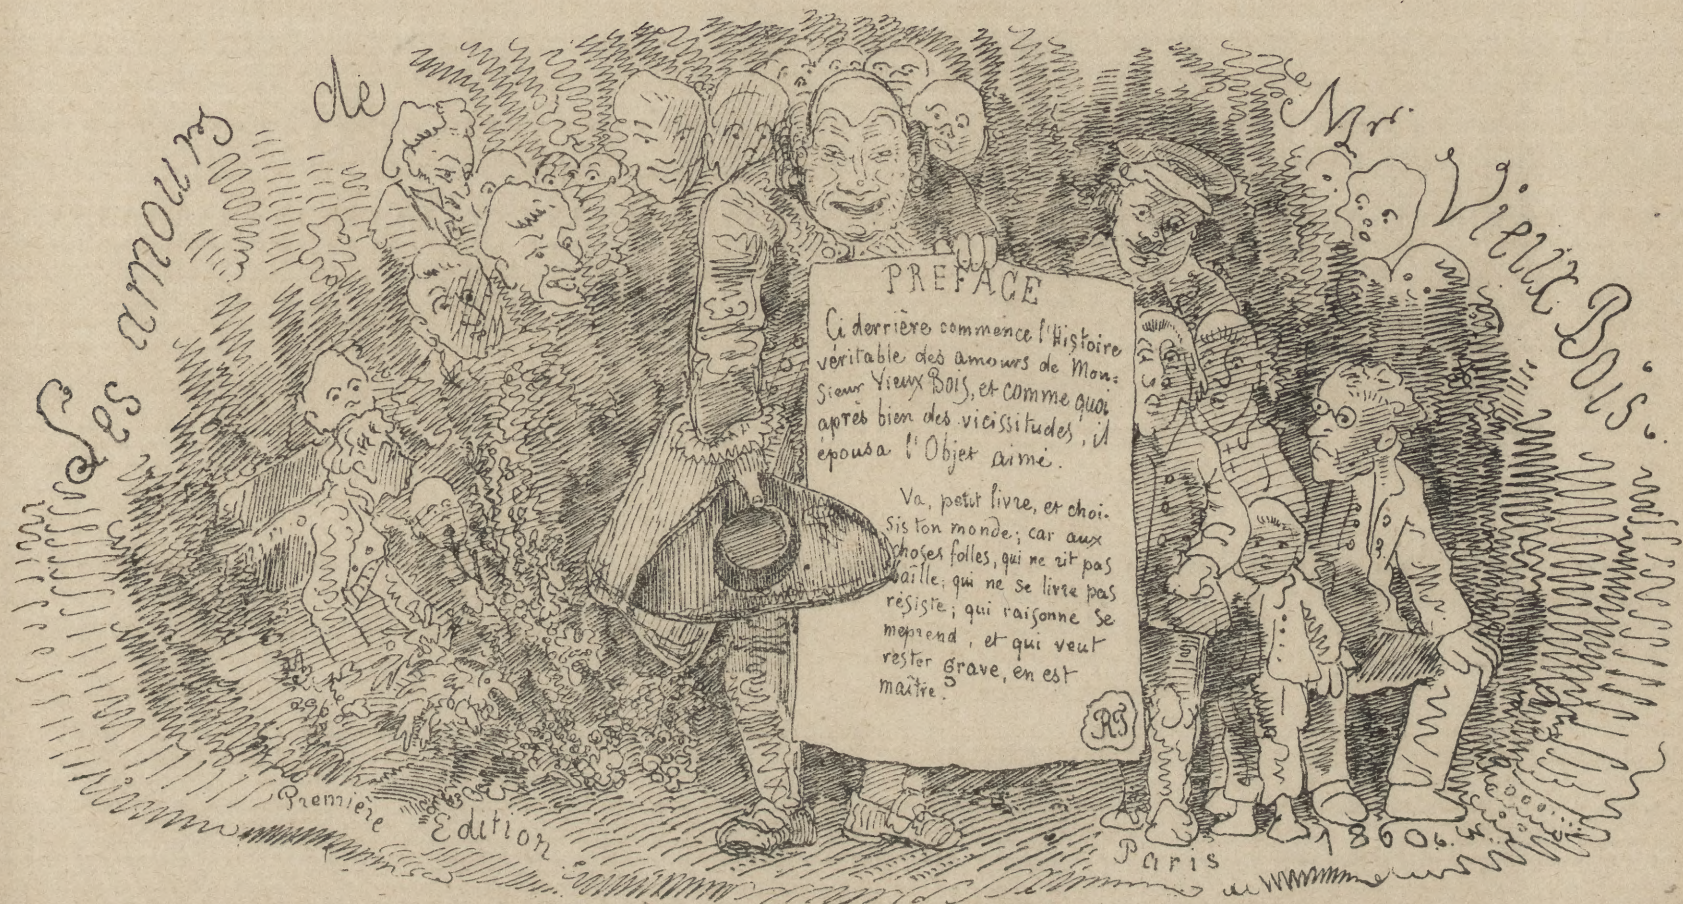 Les amours de Mr. Vieux Bois.
PREFACE
Ci derrière commence l'Histoire
véritable des amours de Mon=
sieur Vieux Bois, et comme quoi
après bien des vicissitudes, il
épousa l'Objet aimé.
Va, petit livre, et choi-
sis ton monde; car aux
choses folles, qui ne rit pas
baille; qui ne se livre pas
résiste; qui raisonne se
meprend, et qui veut
rester grave, en est
maître.
RT
Première Edition
Paris 1860